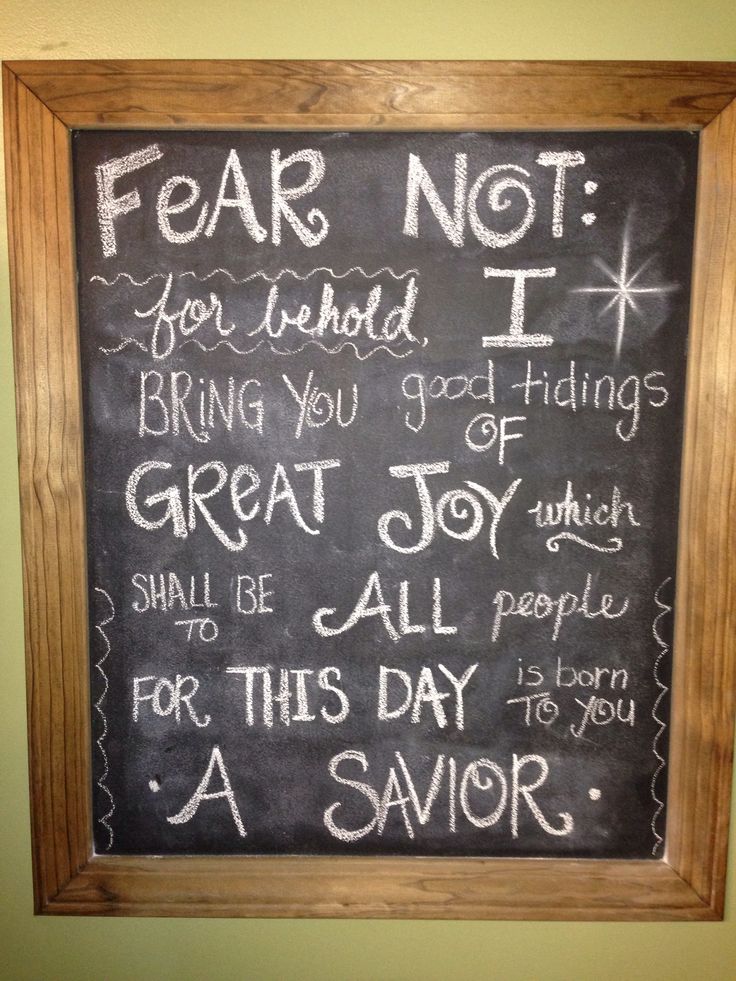 FeAR NOT:
for behold, I
BRiNG YOU good tidings
OF
GReAT JOY which
SHALL BE ALL people
TO
FOR THIS DAY is born
TO YOU
· A SAVIOR ·